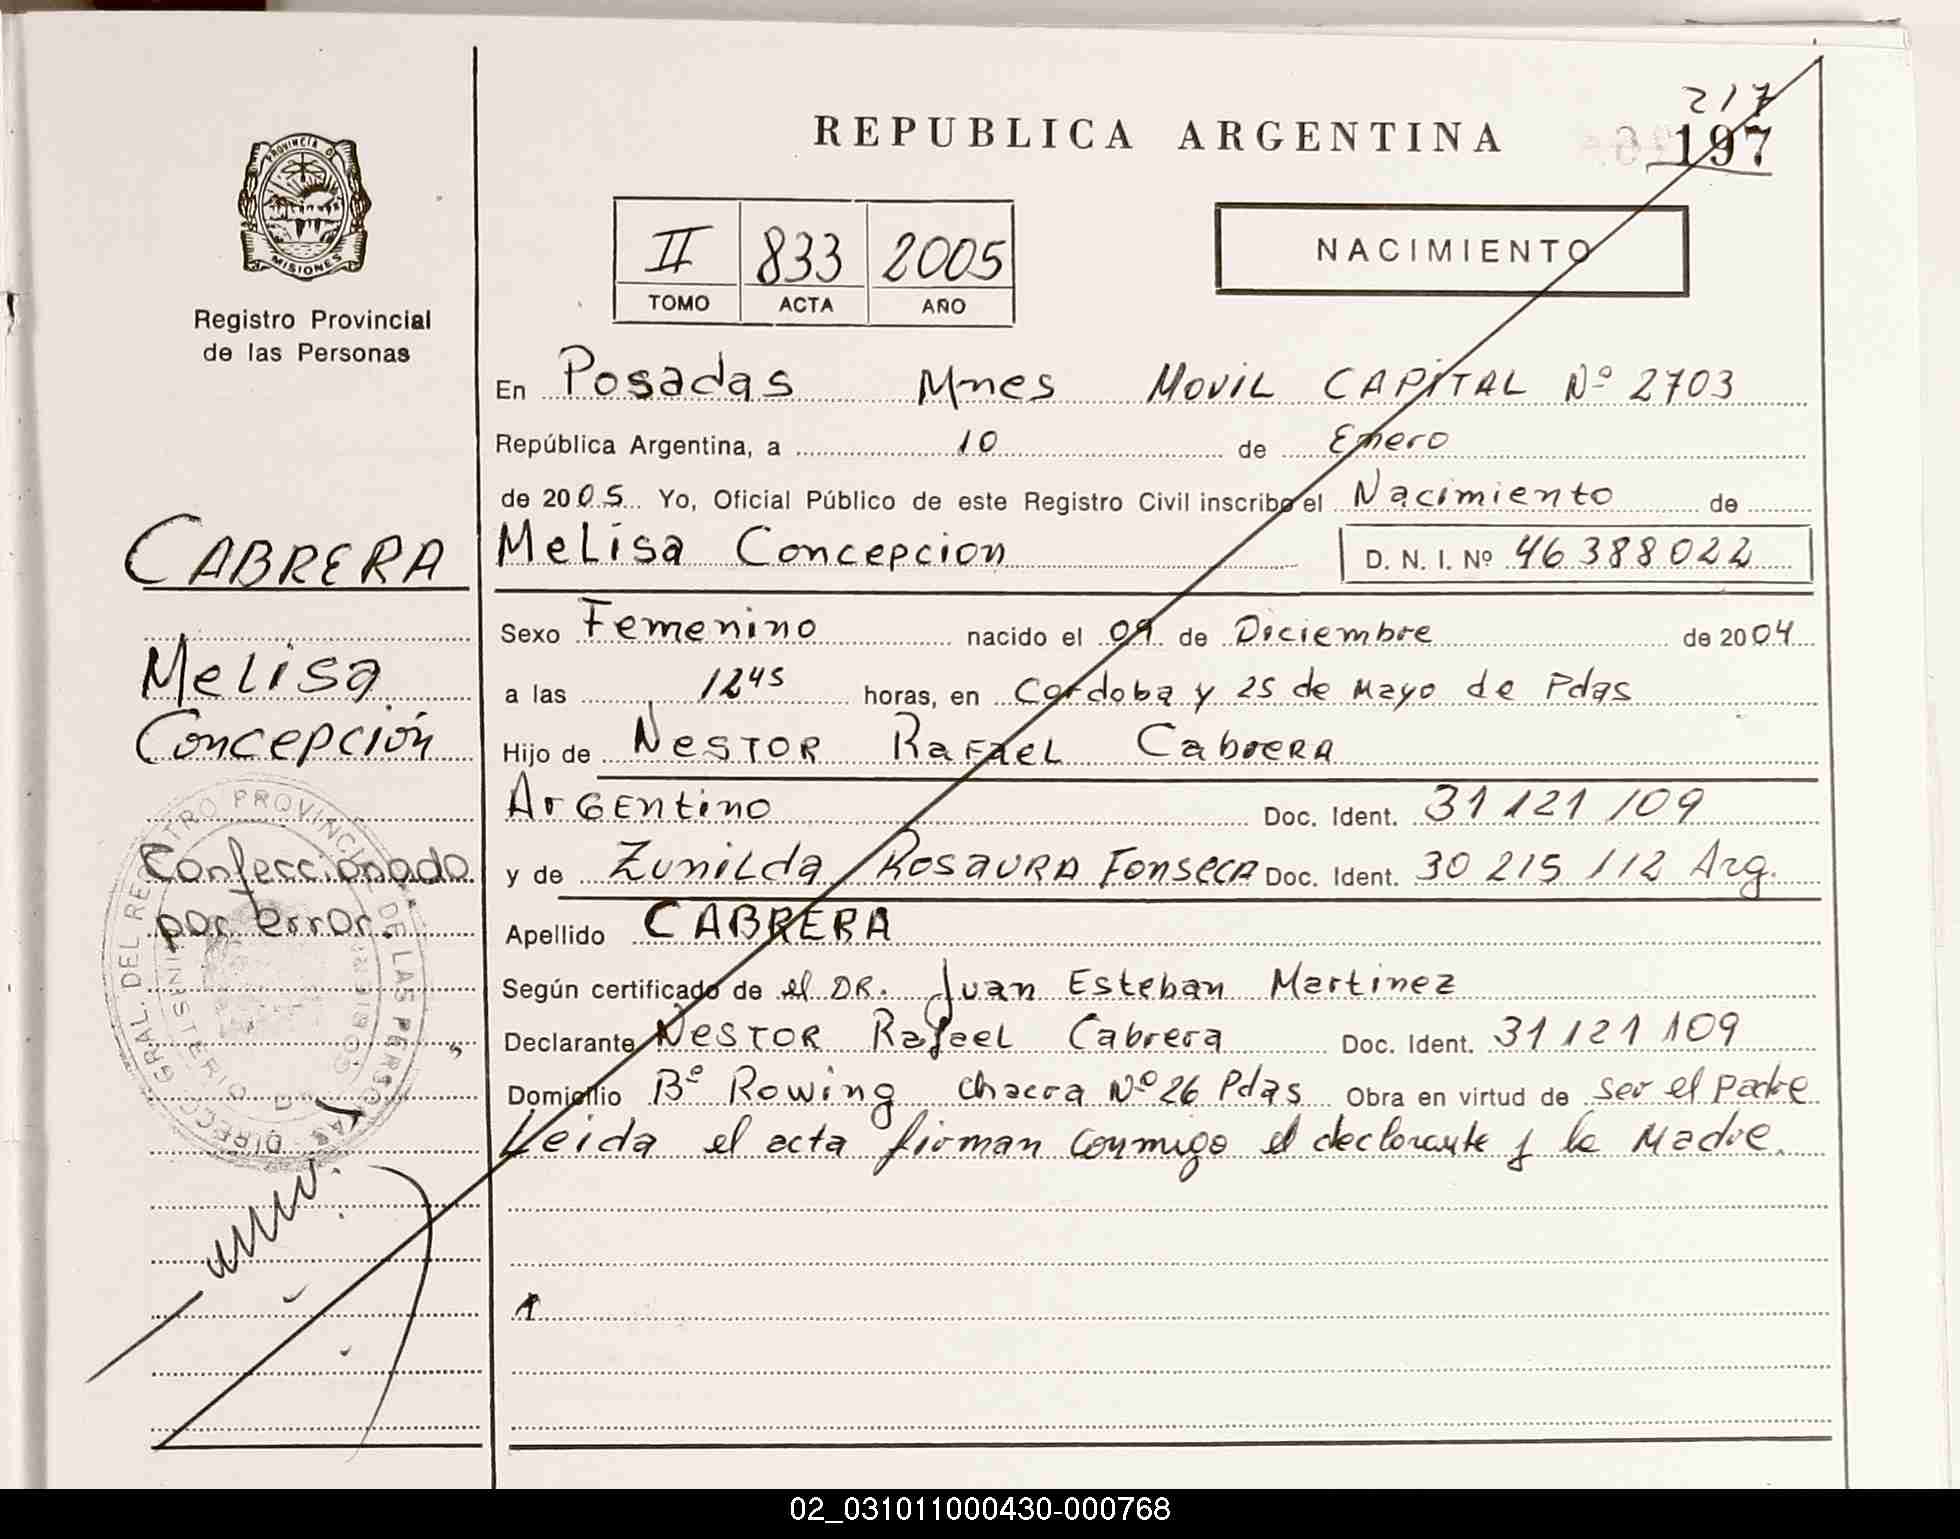 217
REPUBLICA ARGENTINA 197
PROVINCIA D
MISIONES
Registro Provincial
de las Personas
II 833 2005
TOMO ACTA AÑO
NACIMIENTO
En Posadas Mnes MOVIL CAPITAL Nº 2703
República Argentina, a 10 de Enero
de 2005 Yo, Oficial Público de este Registro Civil inscribo el Nacimiento de
CABRERA
Melisa Concepcion D. N. I. Nº 46388022
Sexo Femenino nacido el 09 de Diciembre de 2004
Melisa
a las 12 45 horas, en Cordoba y 25 de Mayo de Pdas
Concepción
Hijo de NESTOR RaFAEL CabrERA
ArGENtino Doc. Ident. 31 121 109
Confeccionado
por error.
y de ZuniLda ROSAURA FONSECA Doc. Ident. 30 215 112 Arg.
Apellido CABRERA
Según certificado de el DR. Juan Esteban Martinez
Declarante NESTOR Rafael Cabrera Doc. Ident. 31 121 109
Domicilio Bº Rowing chacra Nº 26 Pdas Obra en virtud de ser el padre
Leida el acta firman conmigo el declarante y la Madre.
DIRECC. GRAL. DEL REGISTRO PROVINCIAL DE LAS PERSONAS
02_031011000430-000768